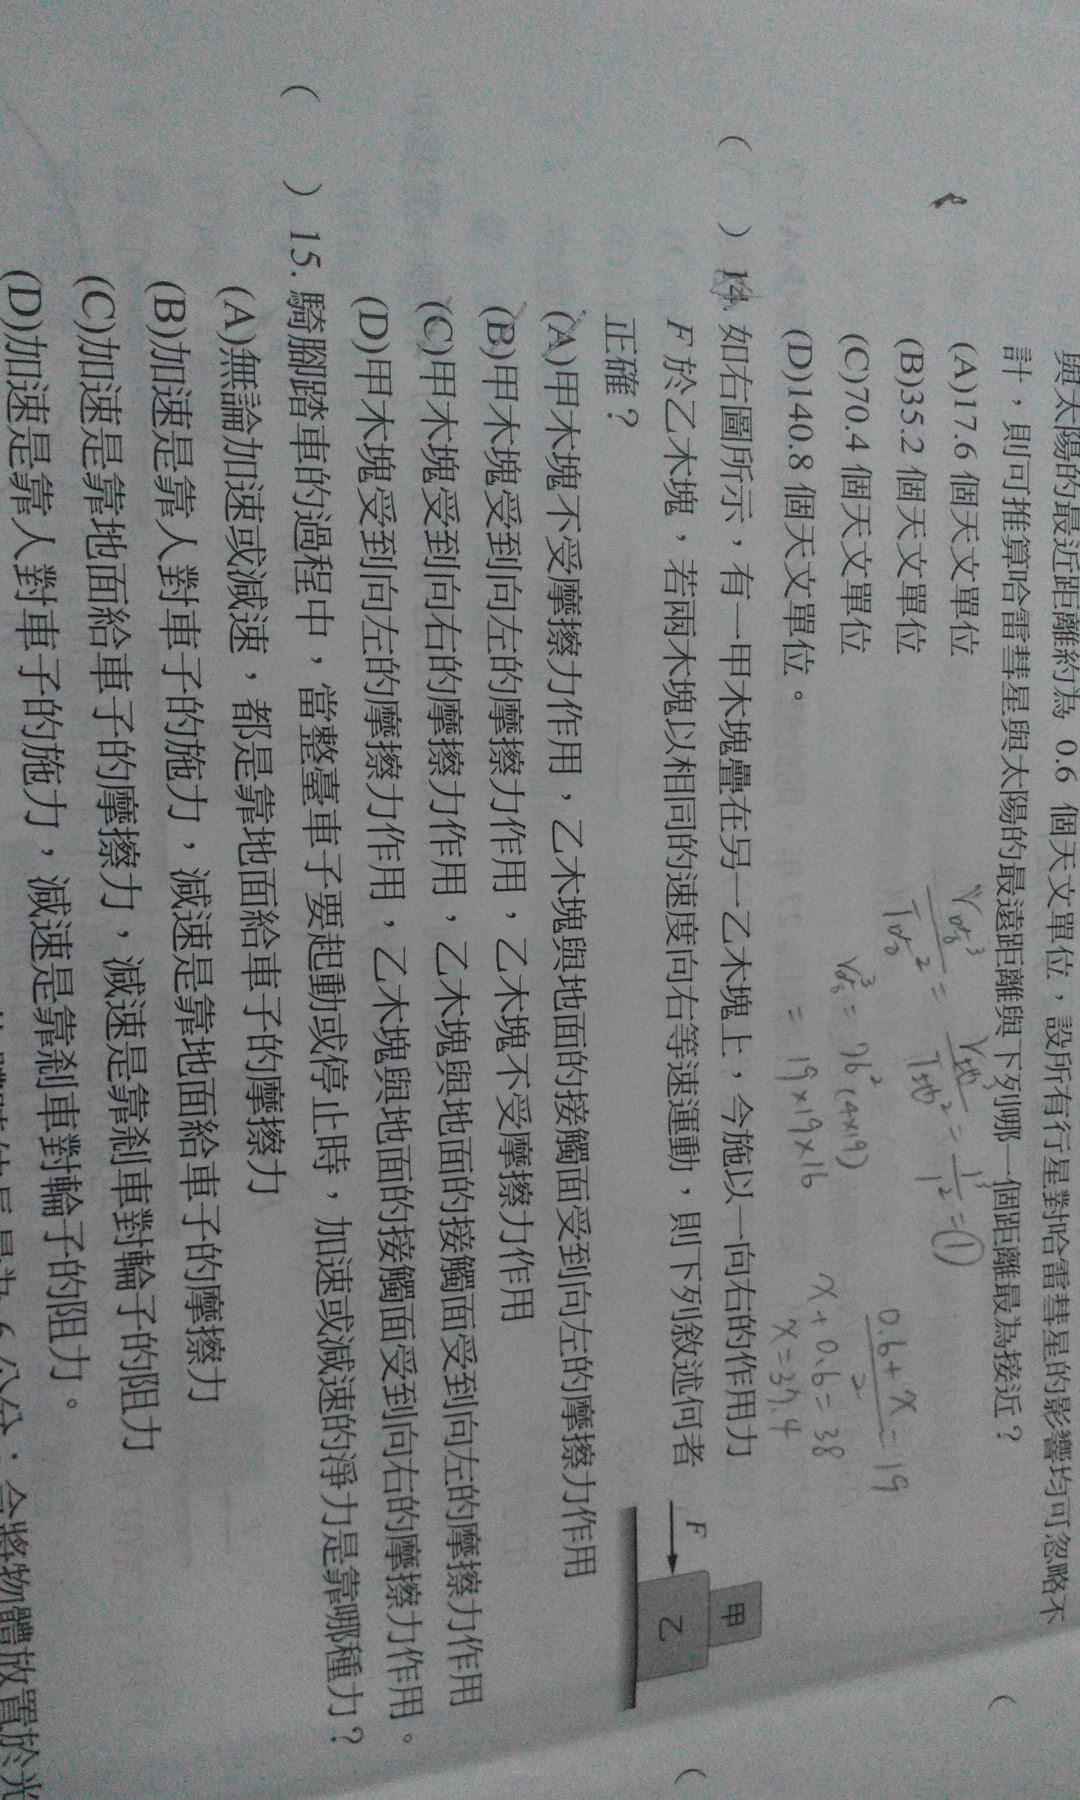 與太陽的最近距離約為 0.6 個天文單位，設所有行星對哈雷彗星的影響均可忽略不
計，則可推算哈雷彗星與太陽的最遠距離與下列哪一個距離最為接近？
(A)17.6 個天文單位
(B)35.2 個天文單位
(C)70.4 個天文單位
(D)140.8 個天文單位。
= 1³/1² = ①
= 19×19×16
(0.6+x)/2 = 19
x+0.6=38
x=37.4
(　) 14. 如右圖所示，有一甲木塊疊在另一乙木塊上，今施以一向右的作用力
F 於乙木塊，若兩木塊以相同的速度向右等速運動，則下列敘述何者
正確？
F
甲
乙
(A)甲木塊不受摩擦力作用，乙木塊與地面的接觸面受到向左的摩擦力作用
(B)甲木塊受到向左的摩擦力作用，乙木塊不受摩擦力作用
(C)甲木塊受到向右的摩擦力作用，乙木塊與地面的接觸面受到向左的摩擦力作用
(D)甲木塊受到向左的摩擦力作用，乙木塊與地面的接觸面受到向右的摩擦力作用。
(　) 15. 騎腳踏車的過程中，當整臺車子要起動或停止時，加速或減速的淨力是靠哪種力？
(A)無論加速或減速，都是靠地面給車子的摩擦力
(B)加速是靠人對車子的施力，減速是靠地面給車子的摩擦力
(C)加速是靠地面給車子的摩擦力，減速是靠剎車對輪子的阻力
(D)加速是靠人對車子的施力，減速是靠剎車對輪子的阻力。
6 公分；今將物體放置於光